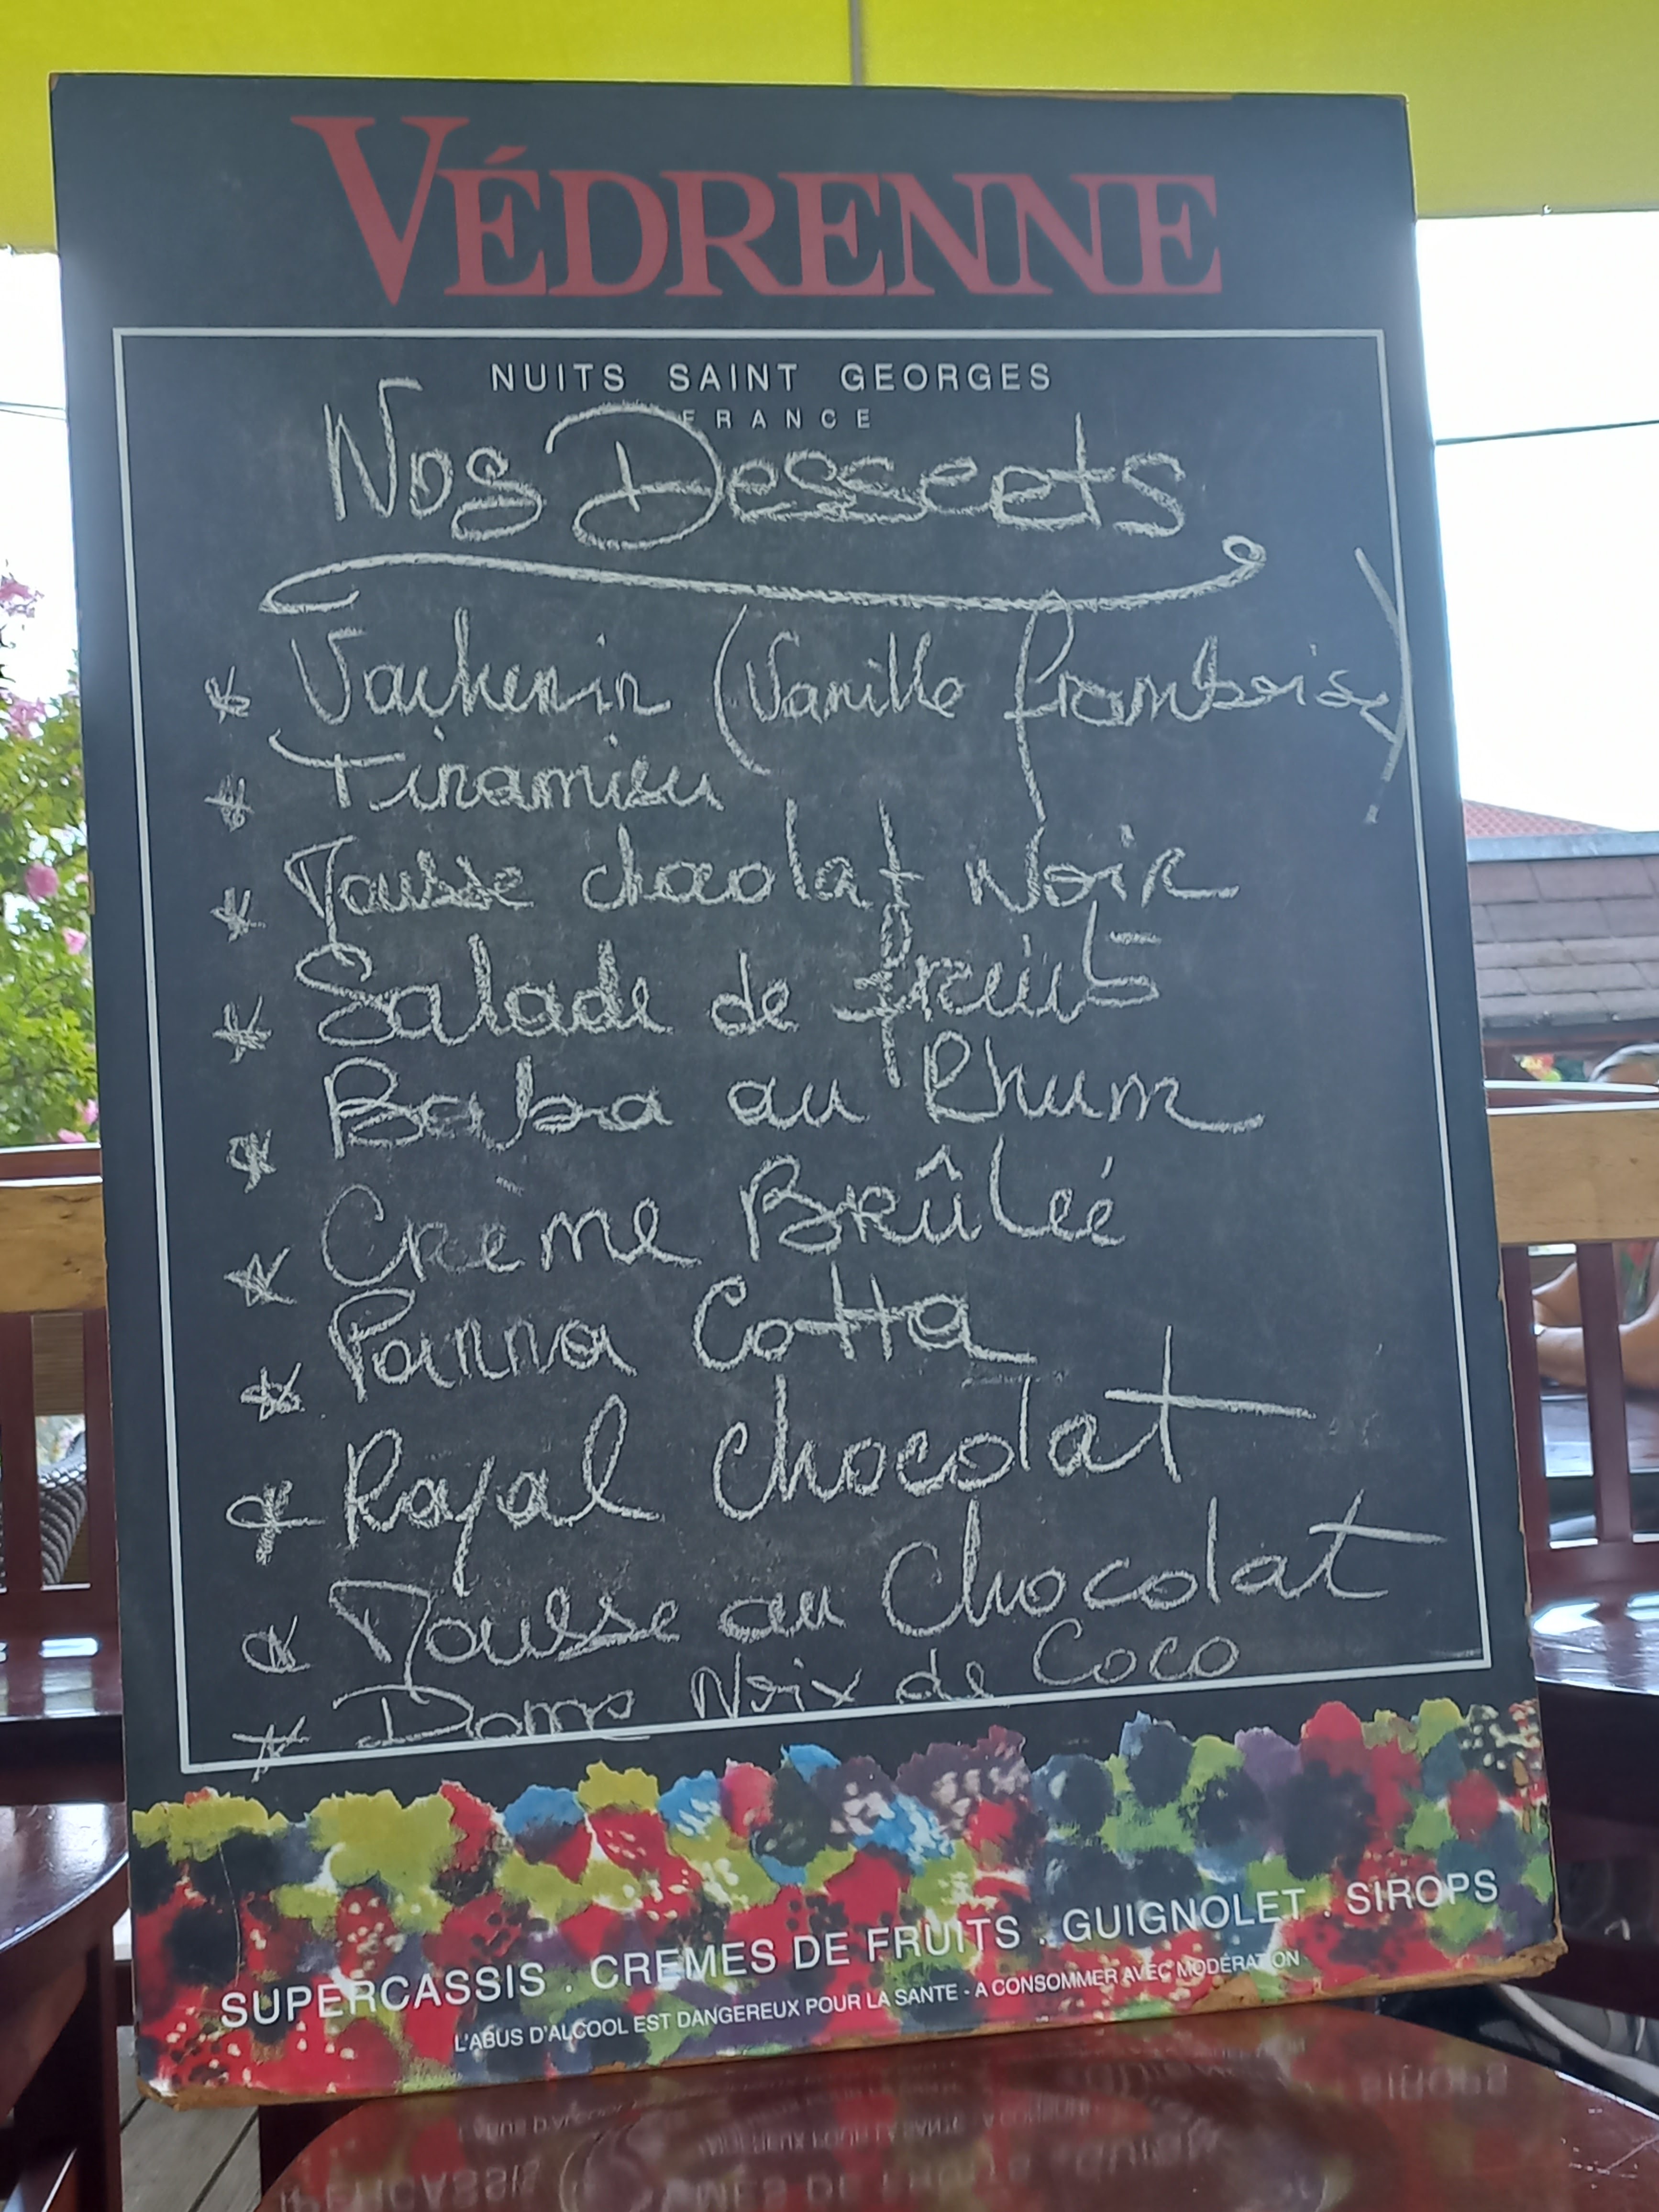 VÉDRENNE
NUITS SAINT GEORGES
FRANCE
Nos Desserts
* Vacherin (Vanille framboise)
* Tiramisu
* Mousse chocolat Noir
* Salade de fruits
* Baba au Rhum
* Crème Brûlée
* Panna Cotta
* Royal Chocolat
* Mousse au Chocolat
* Dome Noix de Coco
SUPERCASSIS . CREMES DE FRUITS . GUIGNOLET . SIROPS
L'ABUS D'ALCOOL EST DANGEREUX POUR LA SANTE - A CONSOMMER AVEC MODÉRATION